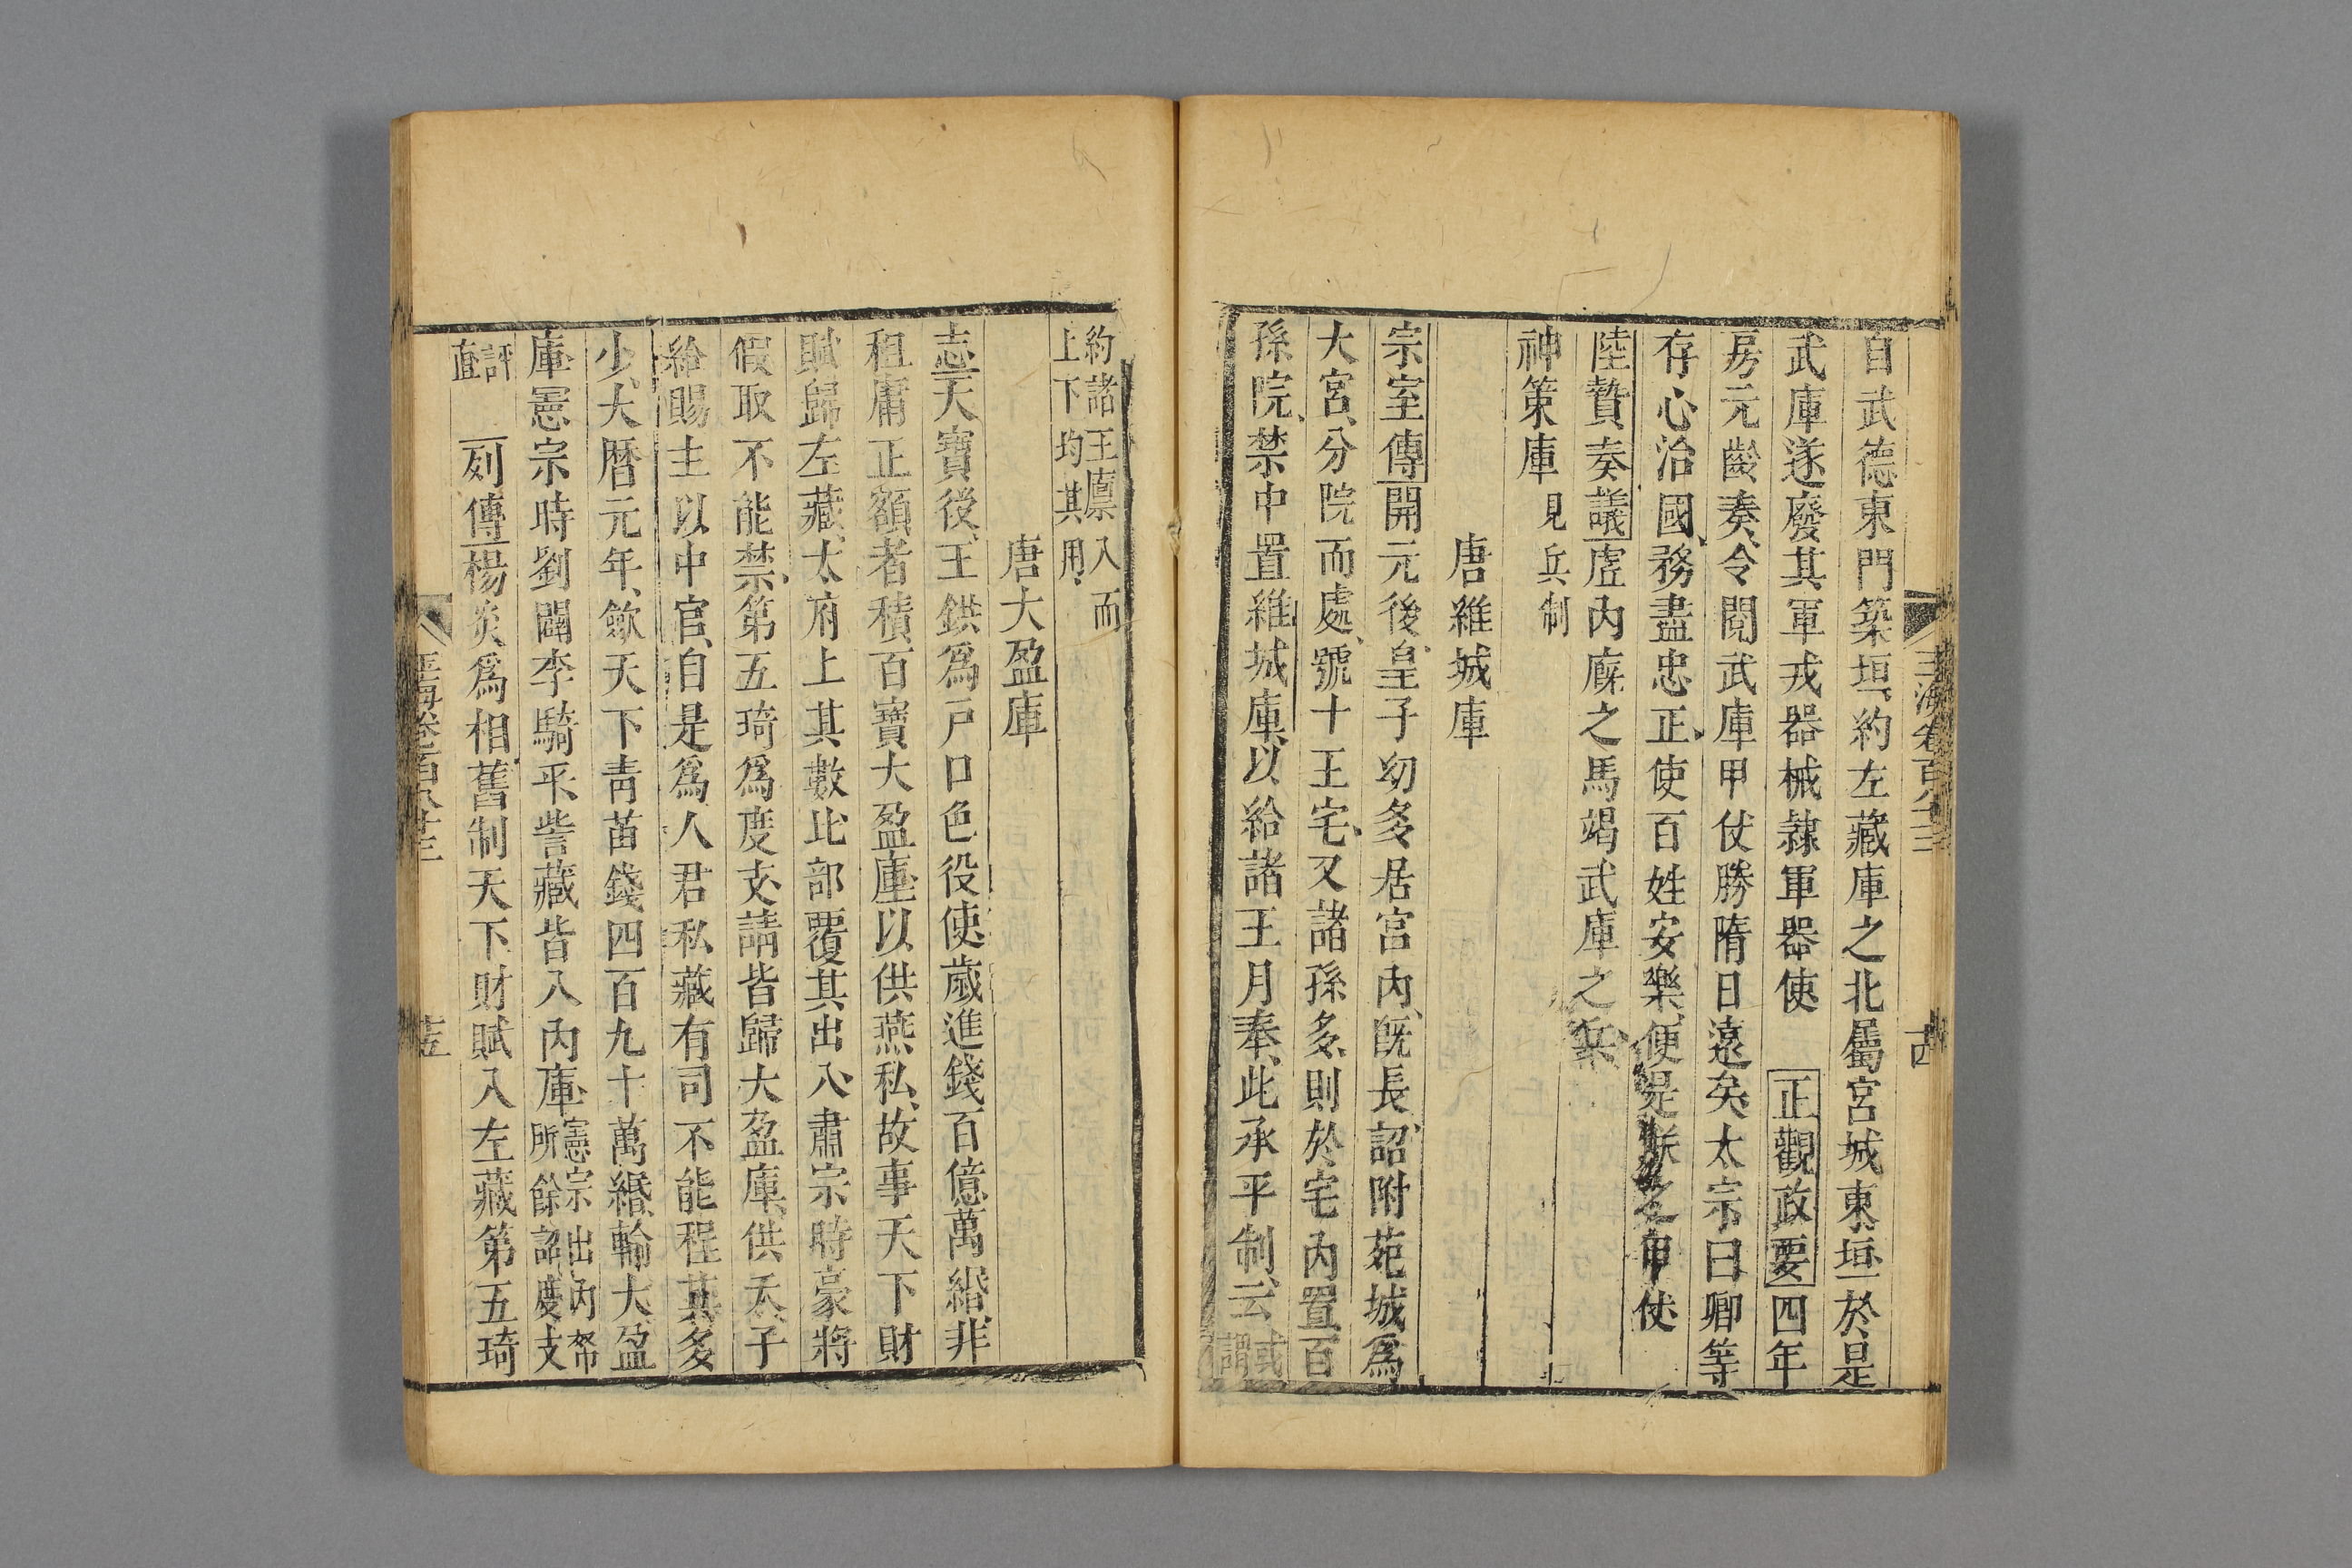 玉海卷百八十三
自武德東門築垣約左藏庫之北屬宮城東垣於是
武庫遂廢其軍戎器械隷軍器使 正觀政要四年
房元齡奏令閱武庫甲仗勝隋日遠矣太宗曰卿等
存心治國務盡忠正使百姓安樂便是朕之甲仗
陸贄奏議虛內廐之馬竭武庫之兵
神策庫見兵制
唐維城庫
宗室傳開元後皇子幼多居宮內既長詔附苑城爲
大宮分院而處號十王宅又諸孫多則於宅內置百
孫院禁中置維城庫以給諸王月奉此承平制云或謂
約諸王廩入而
上下均其用
唐大盈庫
志天寶後王鉷爲戸口色役使歲進錢百億萬緡非
租庸正額者積百寶大盈庫以供燕私故事天下財
賦歸左藏太府上其數比部覆其出入肅宗時豪將
假取不能禁第五琦爲度支請皆歸大盈庫供天子
給賜主以中官自是爲人君私藏有司不能程其多
少大曆元年斂天下青苗錢四百九十萬緡輸大盈
庫憲宗時劉闢李騎平訾藏皆入內庫憲宗出內帑
所餘詔度支
評
直 列傳楊炎爲相舊制天下財賦入左藏第五琦
玉海卷百八十三